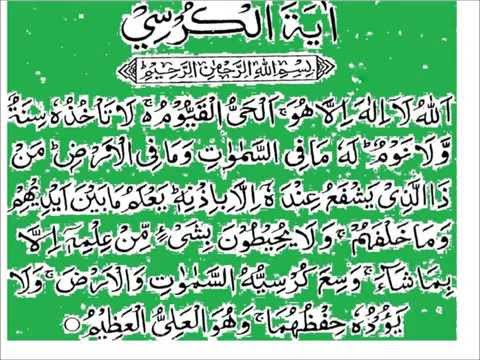 اٰيَةَ الْكُرْسِيْ
بِسْمِ اللهِ الرَّحْمٰنِ الرَّحِيْمِ
اَللهُ لَا اِلٰهَ اِلَّا هُوَ ۚ اَلْحَىُّ الْقَيُّوْمُ ۚ لَا تَأْخُذُهٗ سِنَةٌ
وَّلَا نَوْمٌ ؕ لَهٗ مَا فِى السَّمٰوٰتِ وَمَا فِى الْاَرْضِ ؕ مَنْ
ذَا الَّذِىْ يَشْفَعُ عِنْدَهٗ اِلَّا بِاِذْنِهٖ ؕ يَعْلَمُ مَا بَيْنَ اَيْدِيْهِمْ
وَمَا خَلْفَهُمْ ۚ وَلَا يُحِيْطُوْنَ بِشَىْءٍ مِّنْ عِلْمِهٖۤ اِلَّا
بِمَا شَآءَ ۚ وَسِعَ كُرْسِيُّهُ السَّمٰوٰتِ وَالْاَرْضَ ۚ وَلَا
يَـُٔوْدُهٗ حِفْظُهُمَا ۚ وَهُوَ الْعَلِىُّ الْعَظِيْمُ ۝